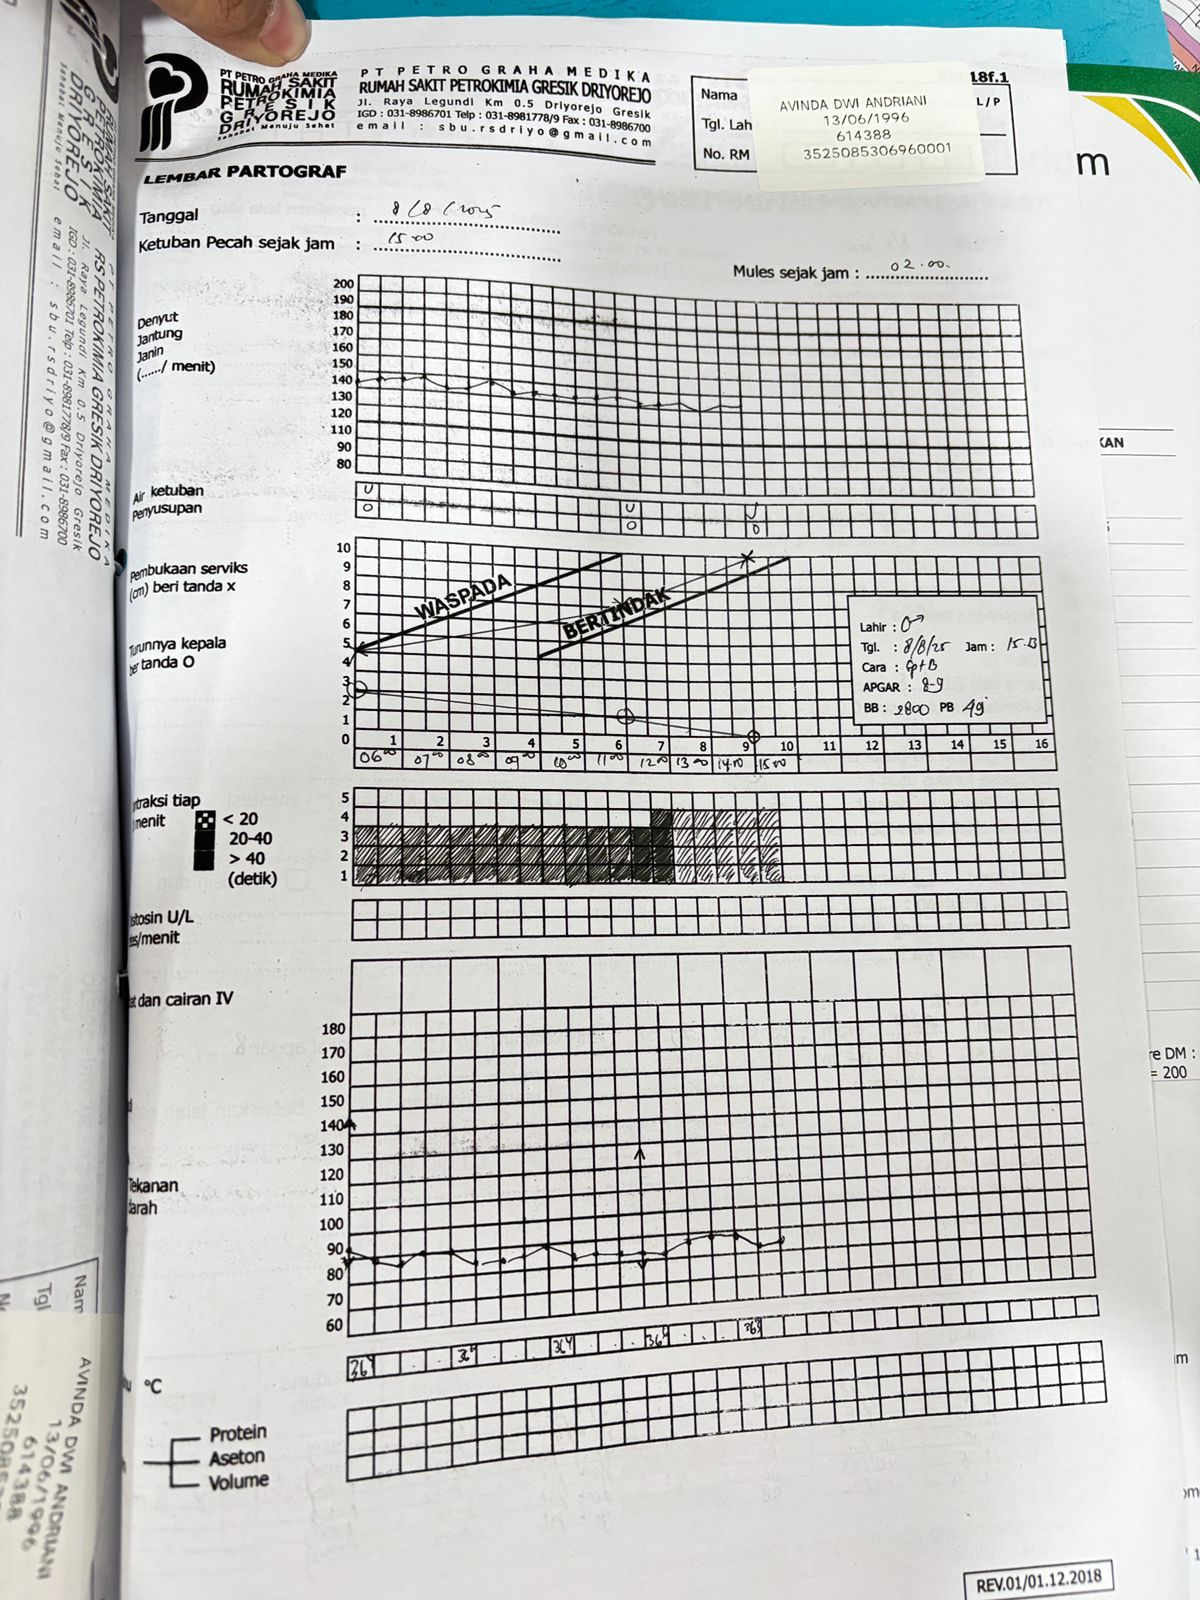 PT PETRO GRAHA MEDIKA
RUMAH SAKIT
PETROKIMIA
GRESIK
DRIYOREJO
Sahabat Menuju Sehat
PT PETRO GRAHA MEDIKA
RUMAH SAKIT PETROKIMIA GRESIK DRIYOREJO
Jl. Raya Legundi Km 0.5 Driyorejo Gresik
IGD : 031-8986701 Telp : 031-8981778/9 Fax : 031-8986700
email : sbu.rsdriyo@gmail.com
18f.1
Nama
L / P
Tgl. Lah
No. RM
AVINDA DWI ANDRIANI
13/06/1996
614388
3525085306960001
LEMBAR PARTOGRAF
Tanggal : 8/8/2025
Ketuban Pecah sejak jam : 15.00
Mules sejak jam : 02.00
Denyut
Jantung
Janin
(....../ menit)
200
190
180
170
160
150
140
130
120
110
90
80
Air ketuban U U U
Penyusupan O O O
Pembukaan serviks
(cm) beri tanda x
Turunnya kepala
ber tanda O
10
9
8
7
6
5
4
3
2
1
0
WASPADA
BERTINDAK
Lahir :
Tgl. : 8/8/25 Jam :
Cara :
APGAR : 8-9
BB : PB 49
1 2 3 4 5 6 7 8 9 10 11 12 13 14 15 16
06⁰⁰ 07⁰⁰ 08⁰⁰ 09⁰⁰ 10⁰⁰ 11⁰⁰ 12⁰⁰ 13⁰⁰ 14⁰⁰ 15⁰⁰
ntraksi tiap
menit
< 20
20-40
> 40
(detik)
5
4
3
2
1
sitosin U/L
tes/menit
at dan cairan IV
180
170
160
150
140
130
120
110
100
90
80
70
60
Tekanan
darah
°C
36⁴ 36⁴ 36⁴ 36⁴
Protein
Aseton
Volume
REV.01/01.12.2018
PT PETRO GRAHA MEDIKA
RS PETROKIMIA GRESIK DRIYOREJO
Jl. Raya Legundi Km 0.5 Driyorejo Gresik
IGD : 031-8986701 Telp : 031-8981778/9 Fax : 031-8986700
email : sbu.rsdriyo@gmail.com
Nam
Tgl
AVINDA DWI ANDRIANI
13/06/1996
614388
um
KAN
re DM :
= 200